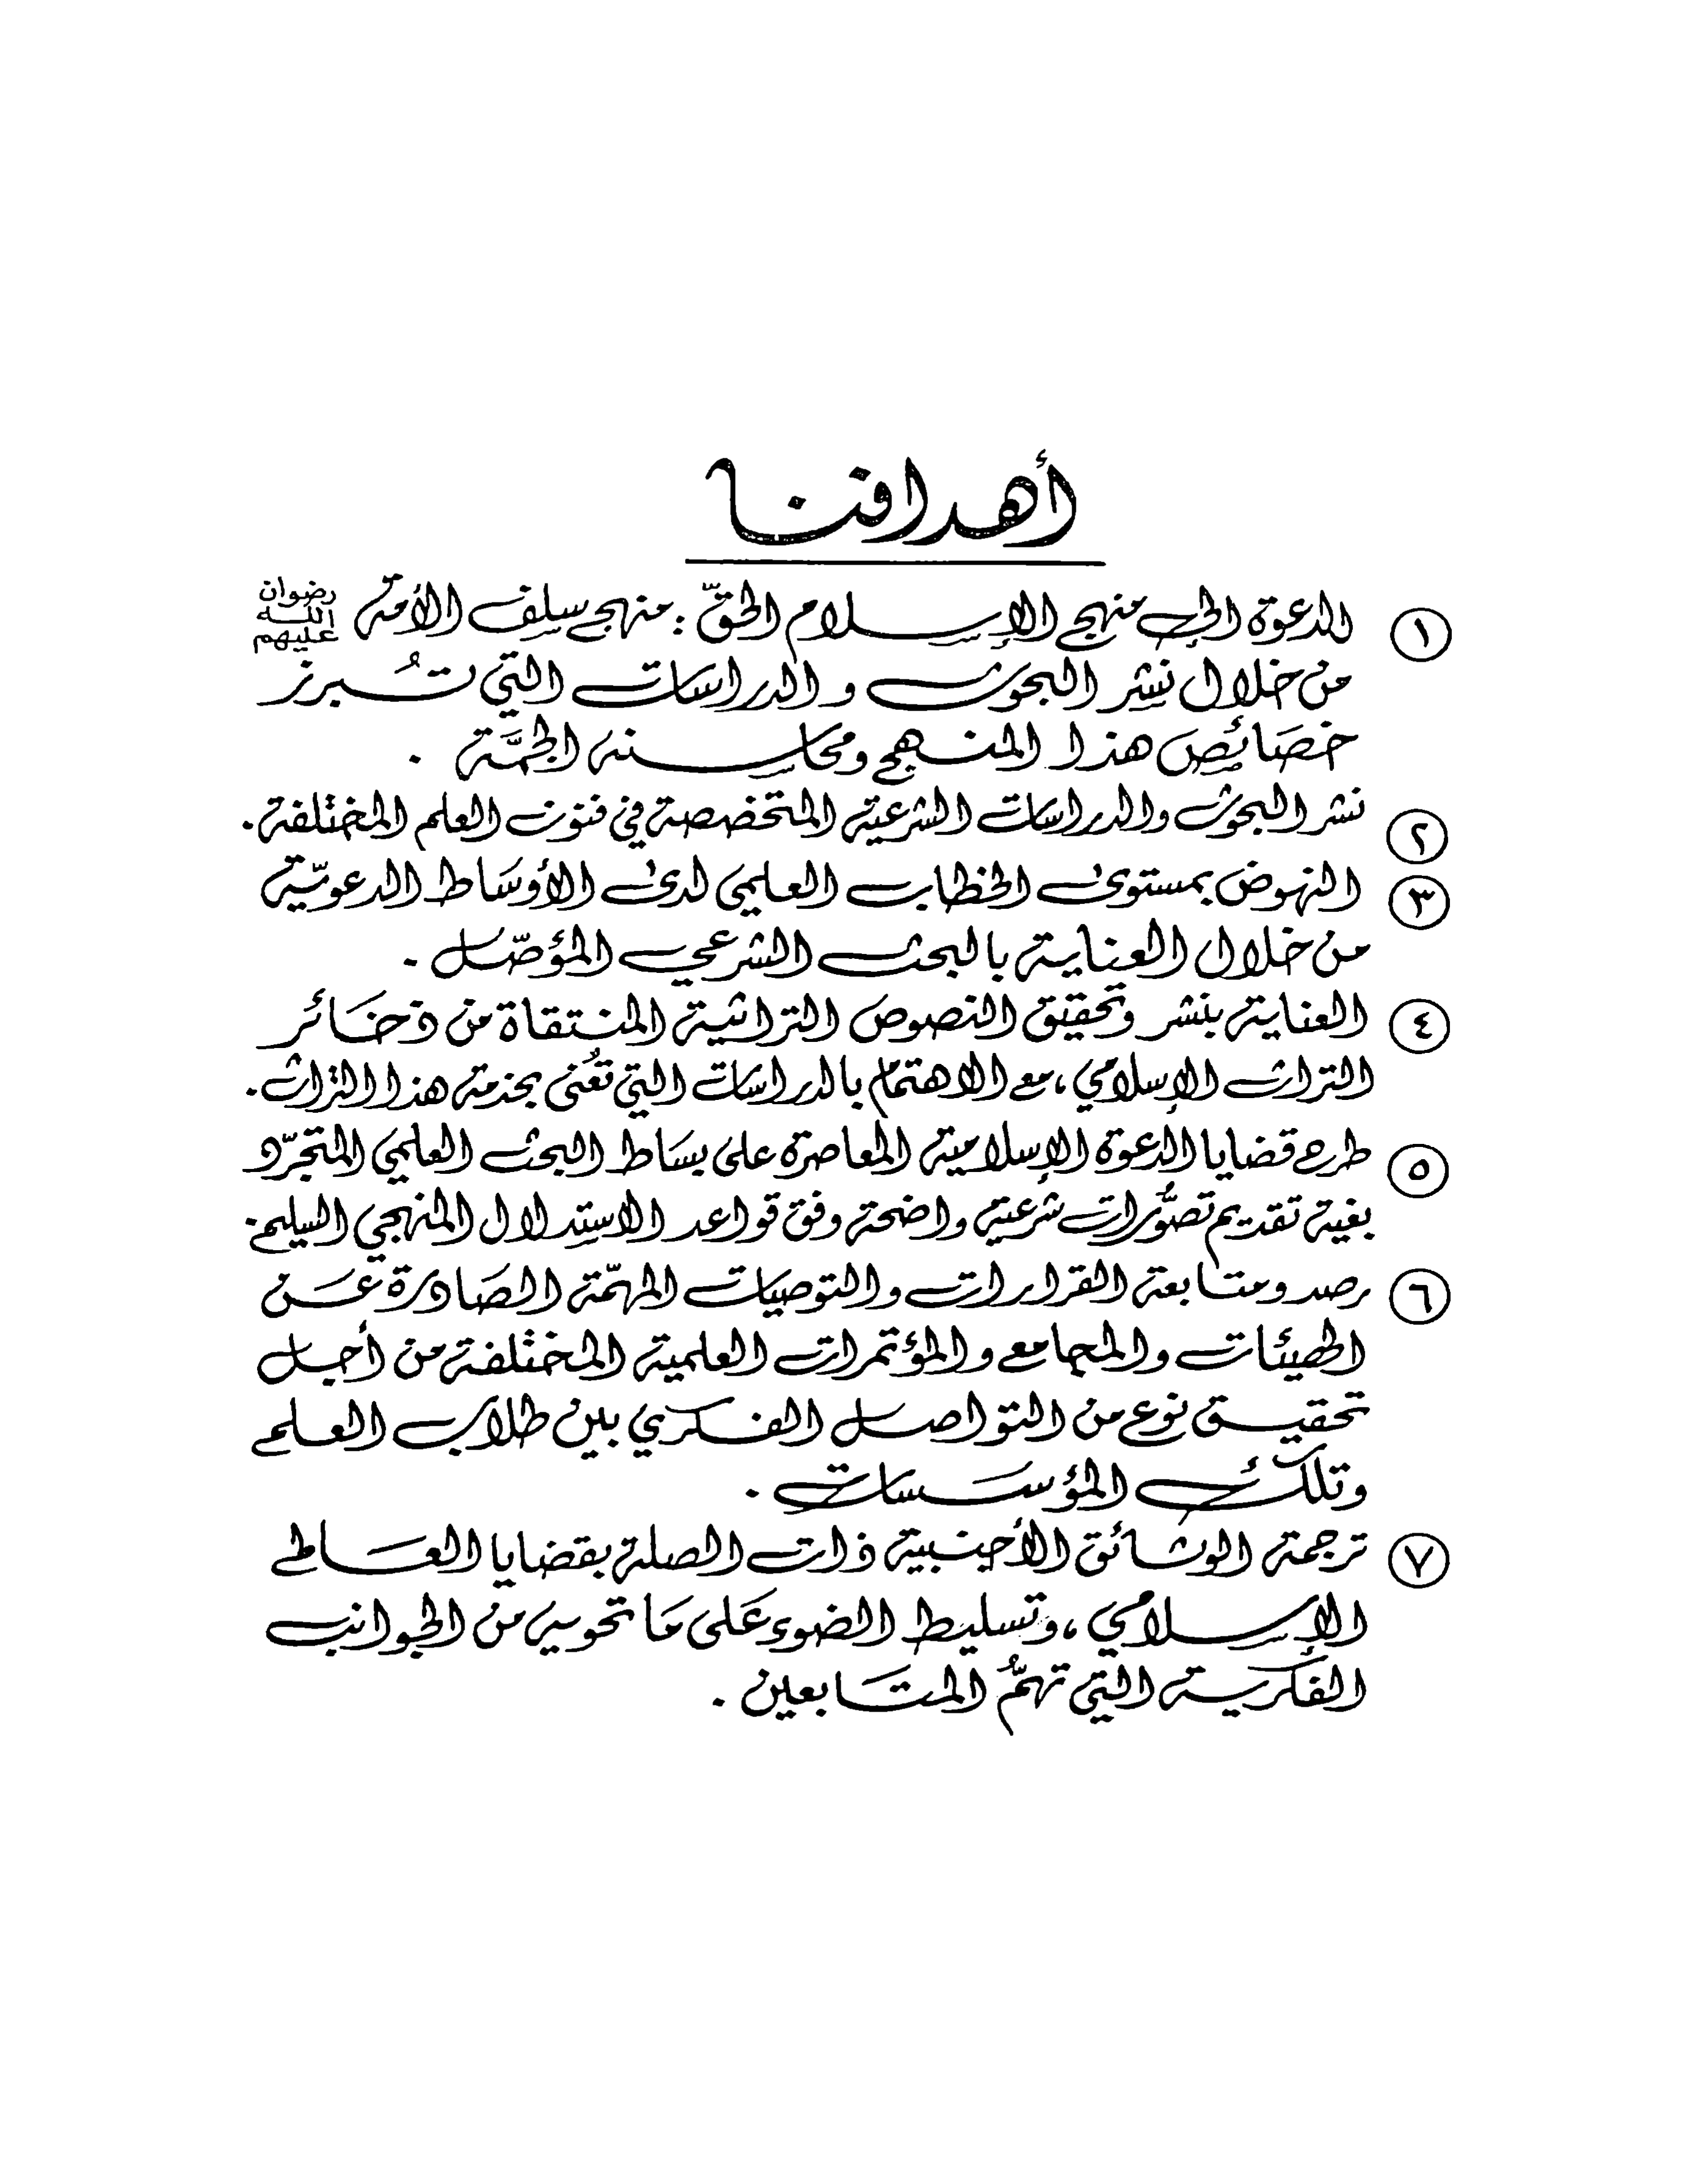 أهدافنا
١ الدعوة إلى منهج الإسلام الحقّ : منهج سلف الأمة رضوان الله عليهم
من خلال نشر البحوث والدراسات التي تُبرز
خصائص هذا المنهج ومحاسنه الجمَّة .
٢ نشر البحوث والدراسات الشرعية المتخصصة في فنون العلم المختلفة .
٣ النهوض بمستوى الخطاب العلمي لدى الأوساط الدعويّة
من خلال العناية بالبحث الشرعي المؤصّل .
٤ العناية بنشر وتحقيق النصوص التراثية المنتقاة من ذخائر
التراث الإسلامي ، مع الاهتمام بالدراسات التي تُعنى بخدمة هذا التراث .
٥ طرح قضايا الدعوة الإسلامية المعاصرة على بساط البحث العلمي المتجرّد
بغية تقديم تصوُّرات شرعية واضحة وفق قواعد الاستدلال المنهجي السليم .
٦ رصد ومتابعة القرارات والتوصيات المهمّة الصادرة عن
الهيئات والمجامع والمؤتمرات العلمية المختلفة من أجل
تحقيق نوع من التواصل الفكري بين طلاب العلم
وتلك المؤسسات .
٧ ترجمة الوثائق الأجنبية ذات الصلة بقضايا العالم
الإسلامي ، وتسليط الضوء على ما تحويه من الجوانب
الفكرية التي تهمُّ المتابعين .